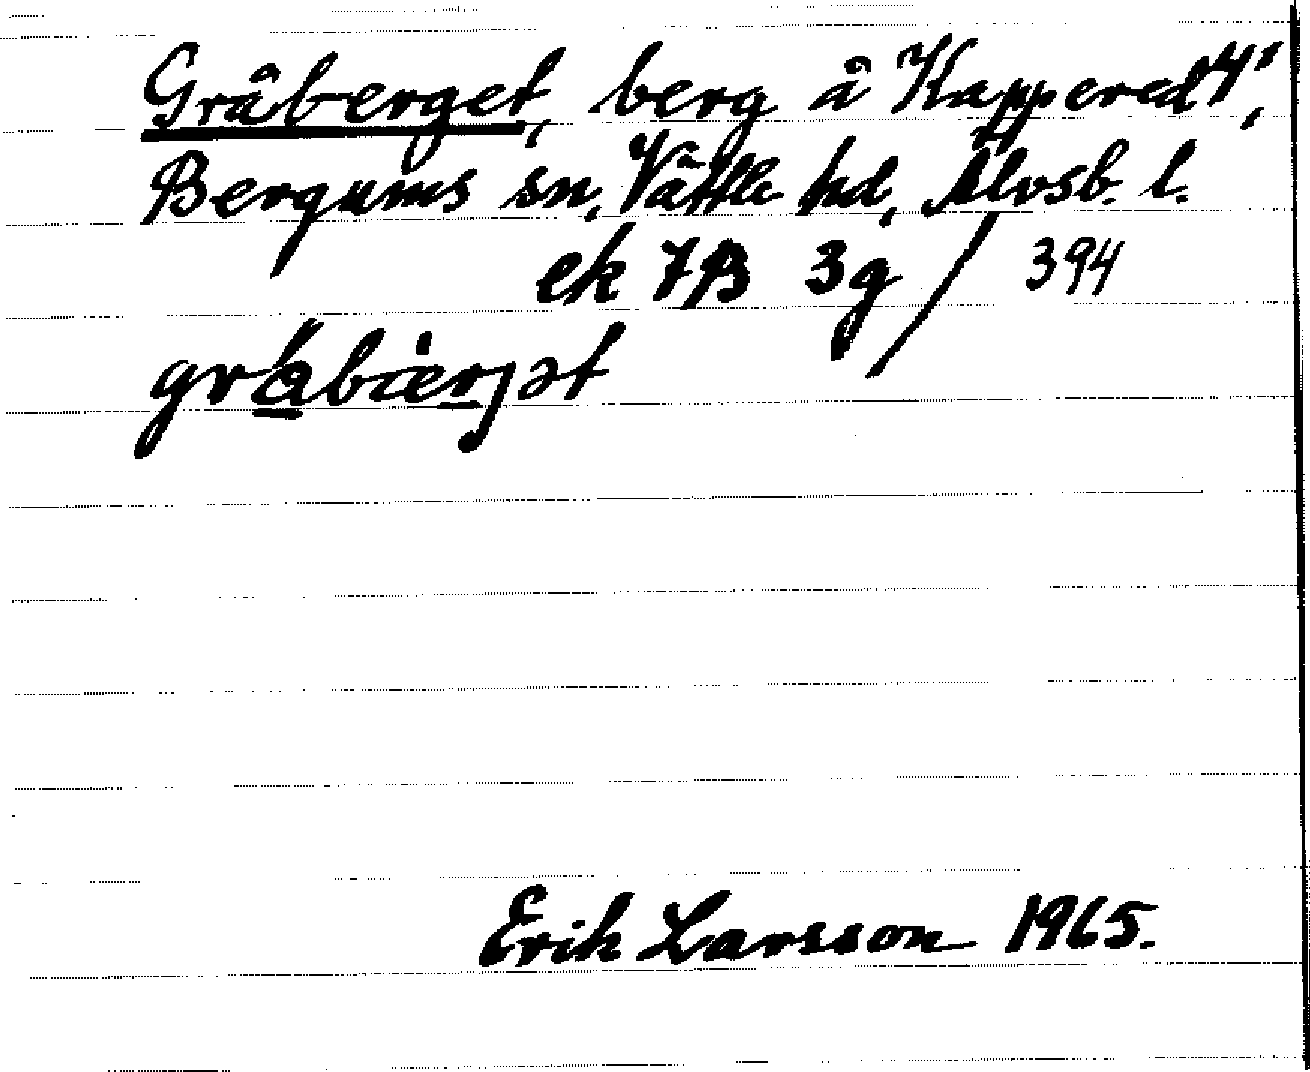 Gråberget, berg å Kappered 4¹,
Bergums sn, Vättle hd, Älvsb. l.
ek 7B 3g / 394
Erik Larsson 1965.